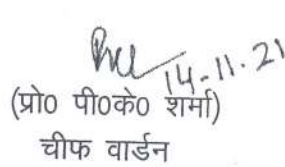 14-11-21
(प्रो0 पी0के0 शर्मा)
चीफ वार्डन